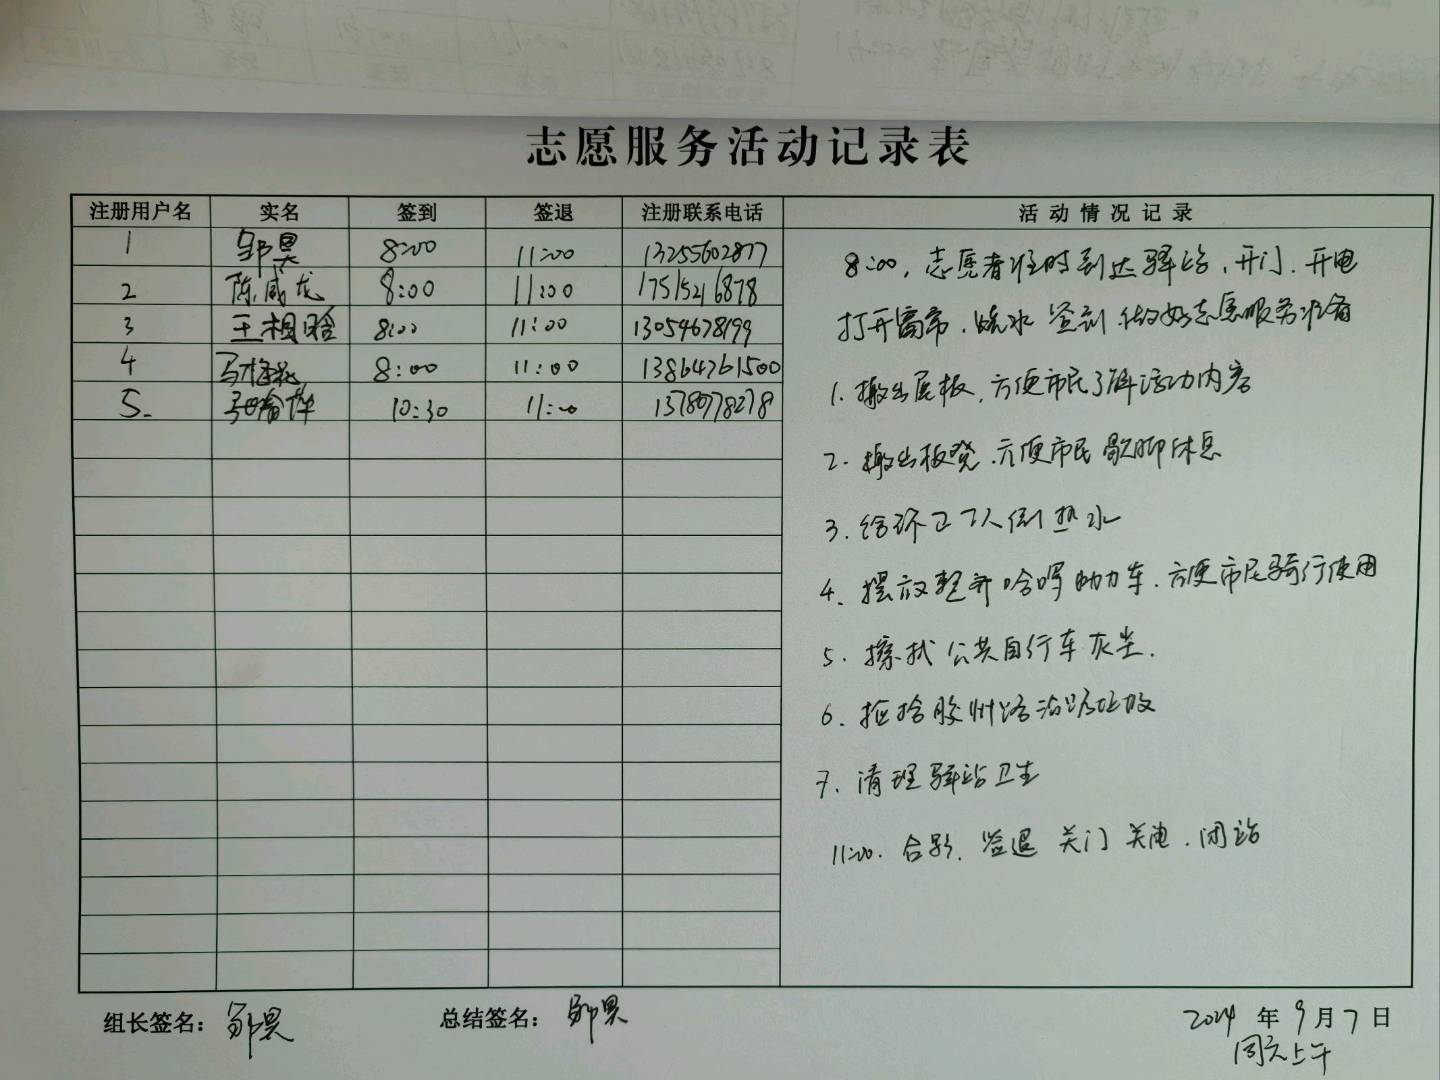 志愿服务活动记录表
注册用户名 实名 签到 签退 注册联系电话 活动情况记录
1 邹昊 8:00 11:00 13255602877
2 陈咸龙 8:00 11:00 17515216878
3 王相晗 8:00 11:00 13054678199
4 8:00 11:00 13864761500
5. 10:30 11:00 13780778278
8:00，志愿者准时到达驿站，开门、开电
打开窗帘、烧水 签到 做好志愿服务准备
1. 搬出展板，方便市民了解活动内容
2. 搬出板凳、方便市民歇脚休息
3. 给环卫工人倒热水
4. 摆放整齐哈啰助力车、方便市民骑行使用
5. 擦拭公共自行车灰尘.
6. 捡拾胶州路沿路垃圾
7. 清理驿站卫生
11:00. 合影、签退 关门 关电、闭站
组长签名：邹昊 总结签名：邹昊 2024年9月7日
周六上午